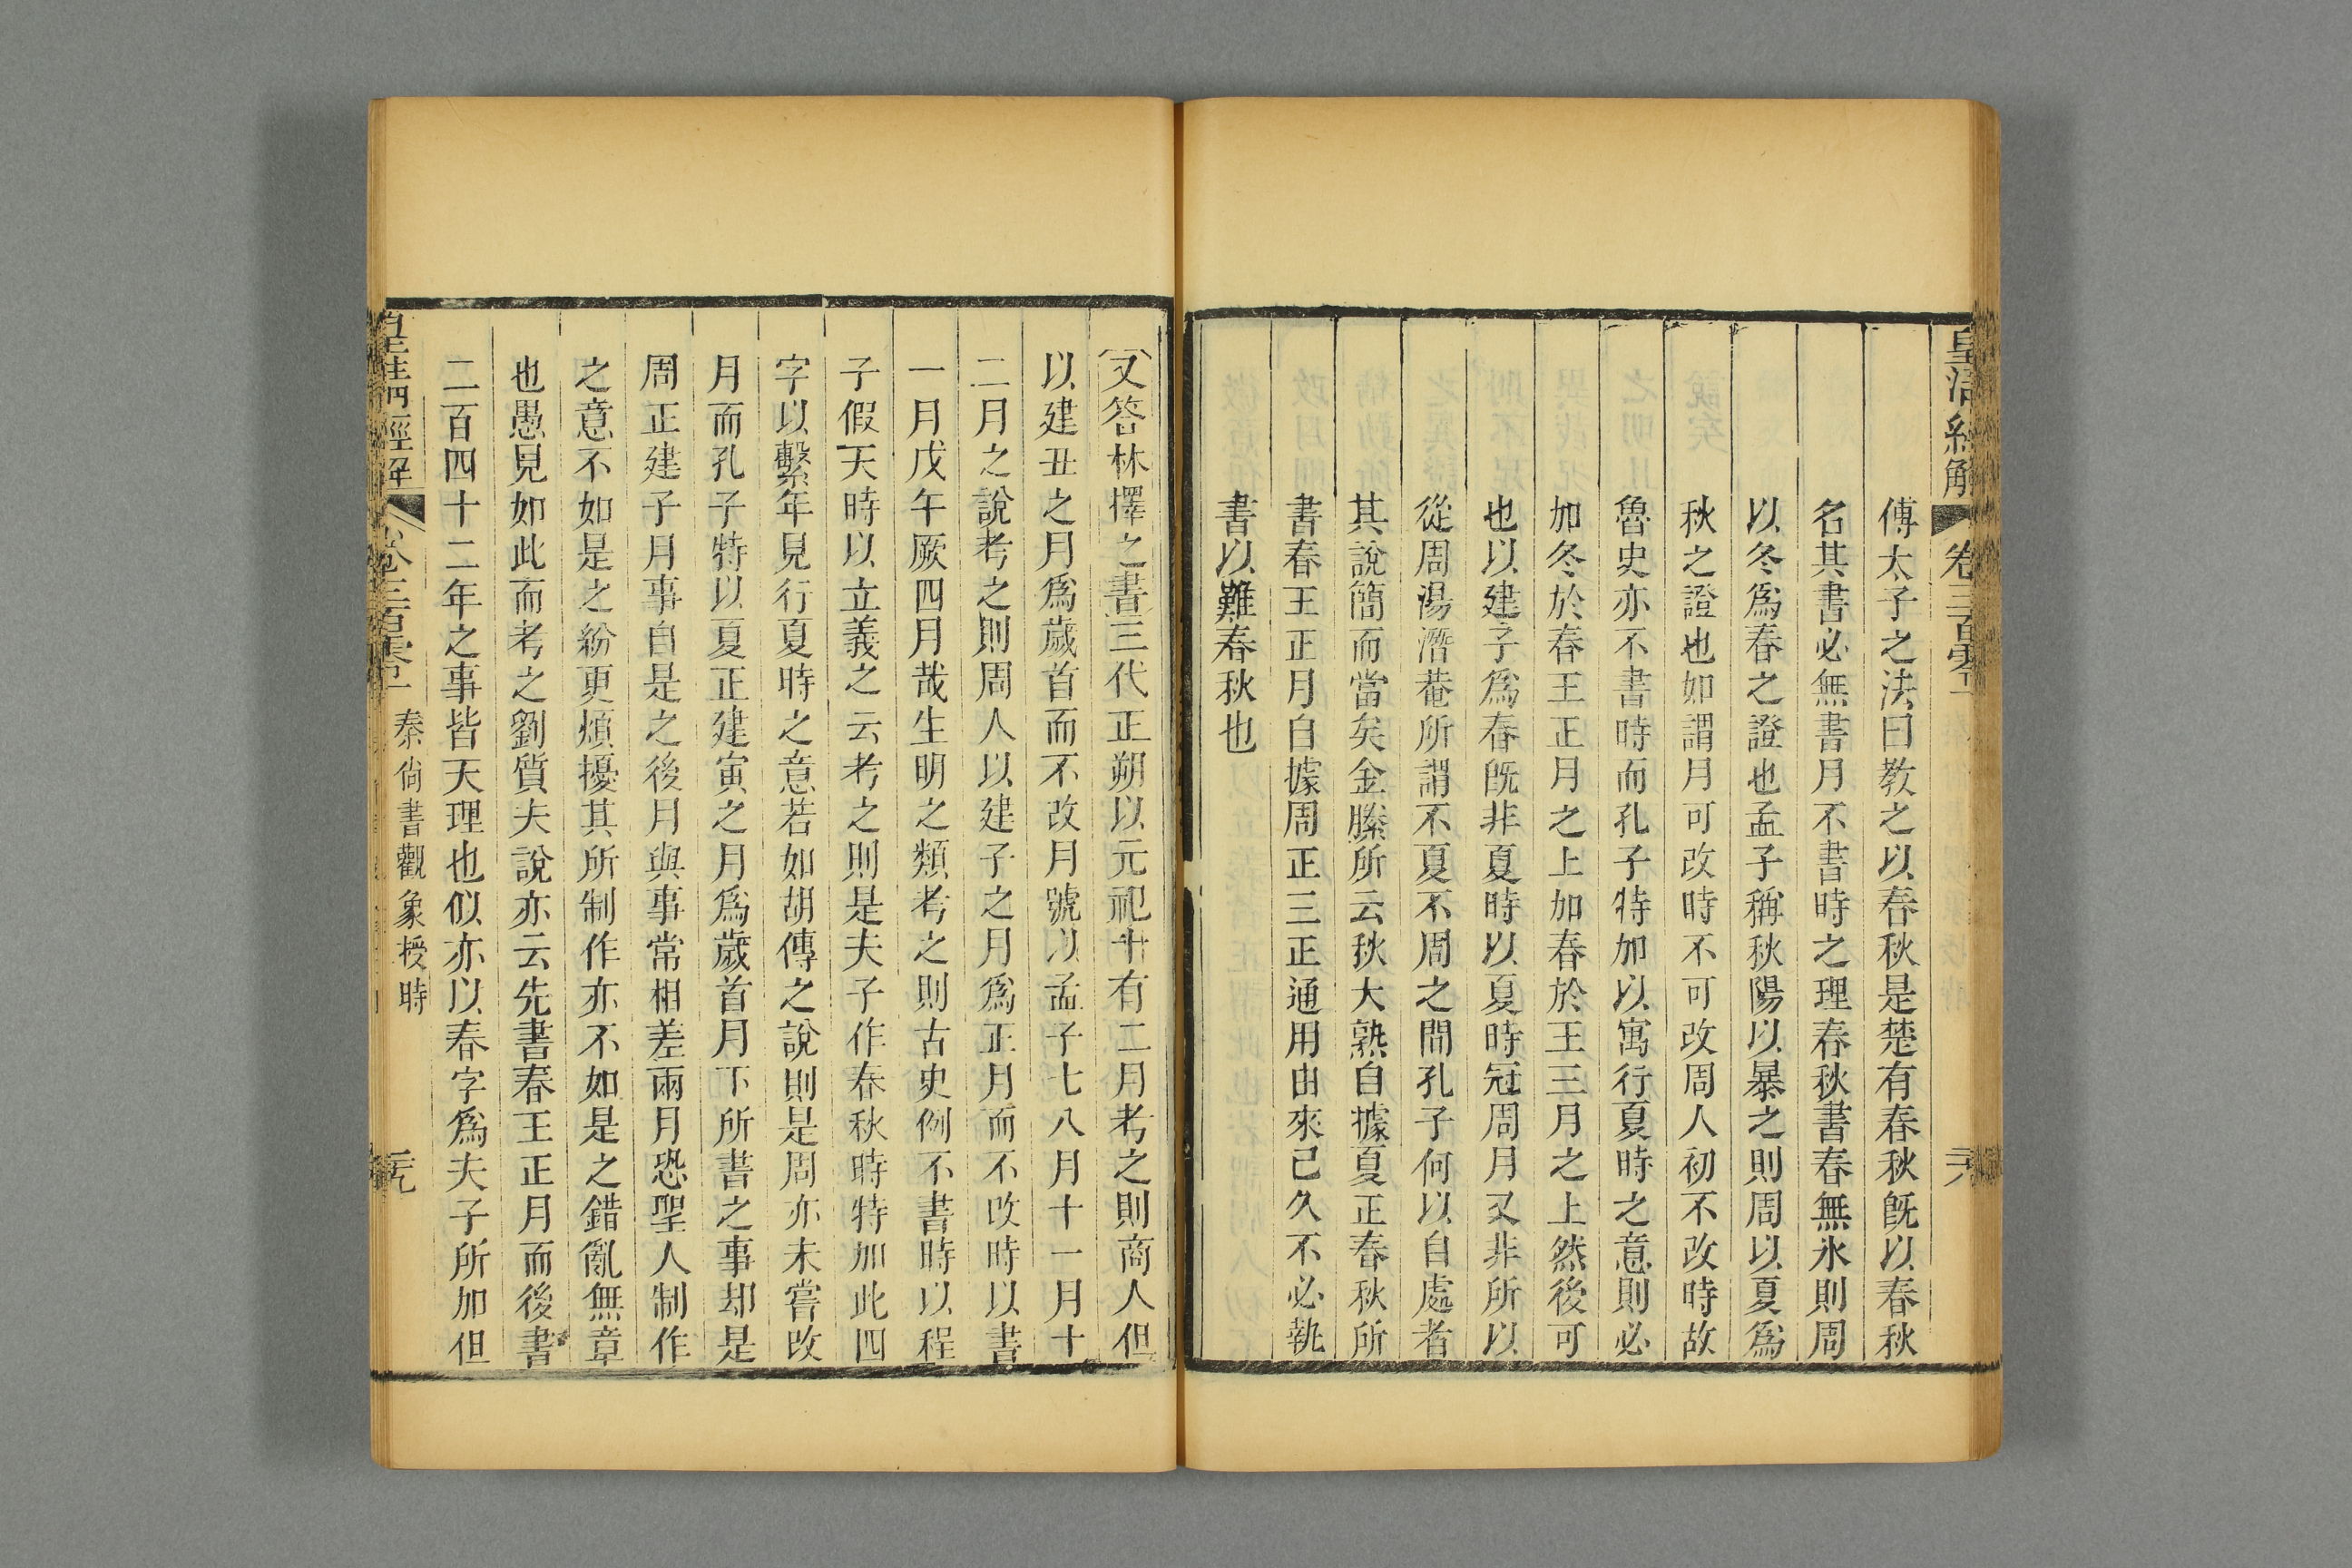 皇清經解 卷三百零一 三六
傅太子之法曰教之以春秋是楚有春秋旣以春秋
名其書必無書月不書時之理春秋書春無氷則周
以冬爲春之證也孟子稱秋陽以暴之則周以夏爲
秋之證也如謂月可改時不可改周人初不改時故
魯史亦不書時而孔子特加以寓行夏時之意則必
加冬於春王正月之上加春於王三月之上然後可
也以建子爲春旣非夏時以夏時冠周月又非所以
從周湯潛菴所謂不夏不周之間孔子何以自處者
其說簡而當矣金縢所云秋大熟自據夏正春秋所
書春王正月自據周正三正通用由來已久不必執
書以難春秋也
又答林擇之書三代正朔以元祀十有二月考之則商人但
以建丑之月爲歲首而不改月號以孟子七八月十一月十
二月之說考之則周人以建子之月爲正月而不改時以書
一月戊午厥四月哉生明之類考之則古史例不書時以程
子假天時以立義之云考之則是夫子作春秋時特加此四
字以繫年見行夏時之意若如胡傳之說則是周亦未嘗改
月而孔子特以夏正建寅之月爲歲首月下所書之事却是
周正建子月事自是之後月與事常相差兩月恐聖人制作
之意不如是之紛更煩擾其所制作亦不如是之錯亂無章
也愚見如此而考之劉質夫說亦云先書春王正月而後書
二百四十二年之事皆天理也似亦以春字爲夫子所加但
卷三百零一 秦尙書觀象授時